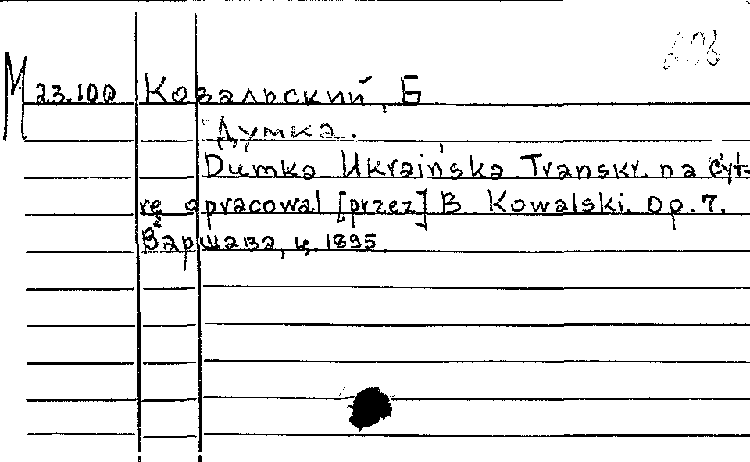 М 23.100 Ковальский, Б
Думка.
Dumka Ukraińska Transkr. na cyt-
rę opracowal [przez] B. Kowalski. Op. 7.
Варшава, ц. 1895.